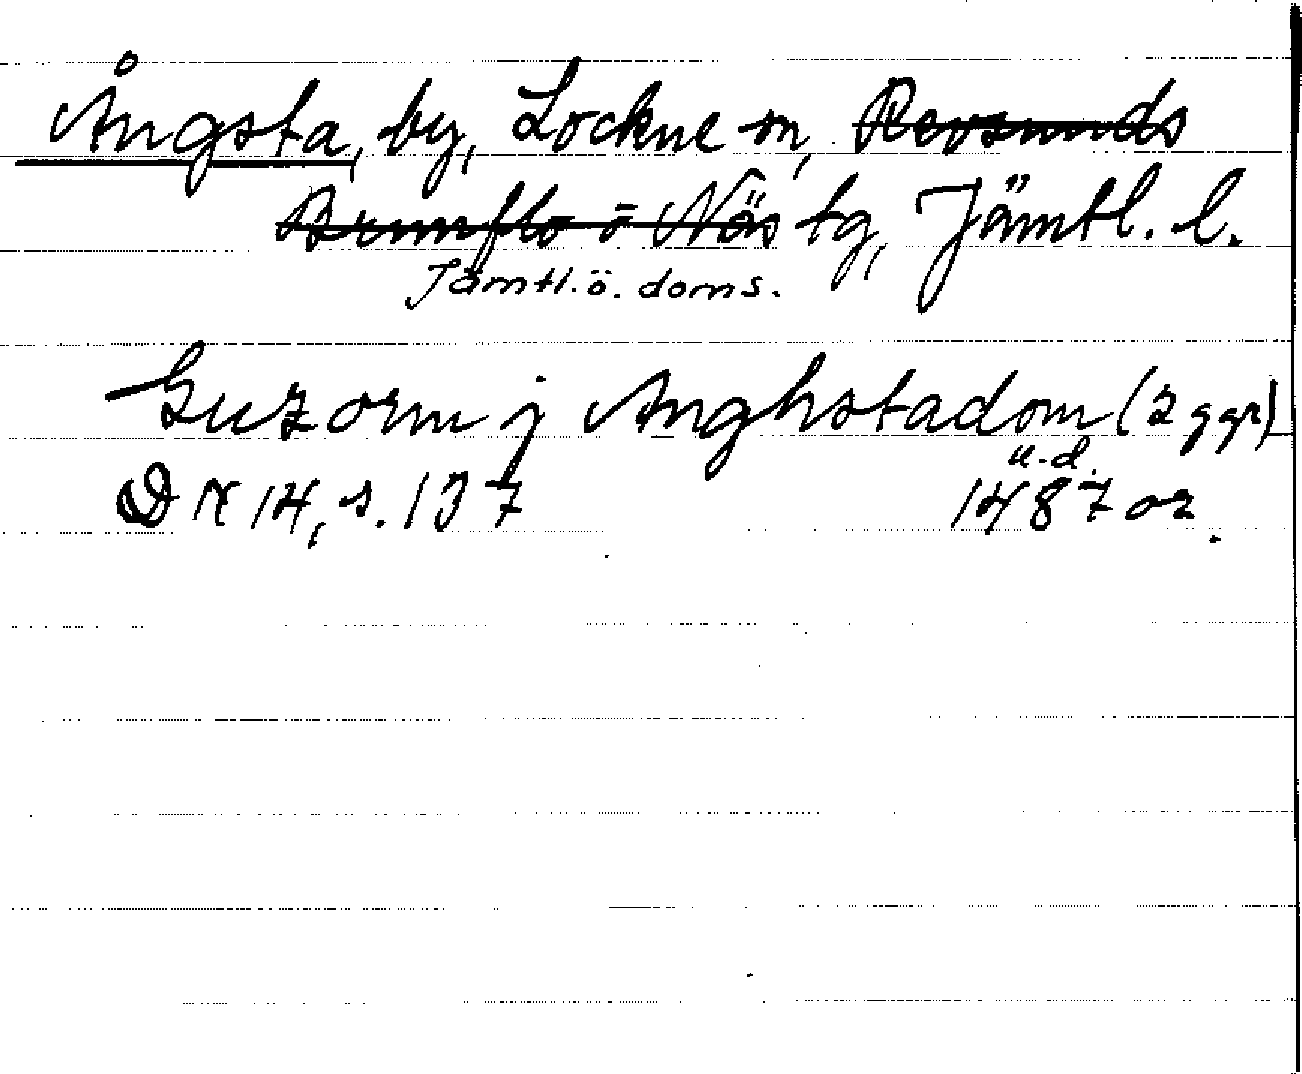 Ångsta, by, Lockne sn, Revsunds
Brunflo o Näs tg, Jämtl. l.
Jämtl. ö. doms.
Guzorm j Anghstadom (2 ggr)
u.d.
DN 14, s. 137 1487 or.